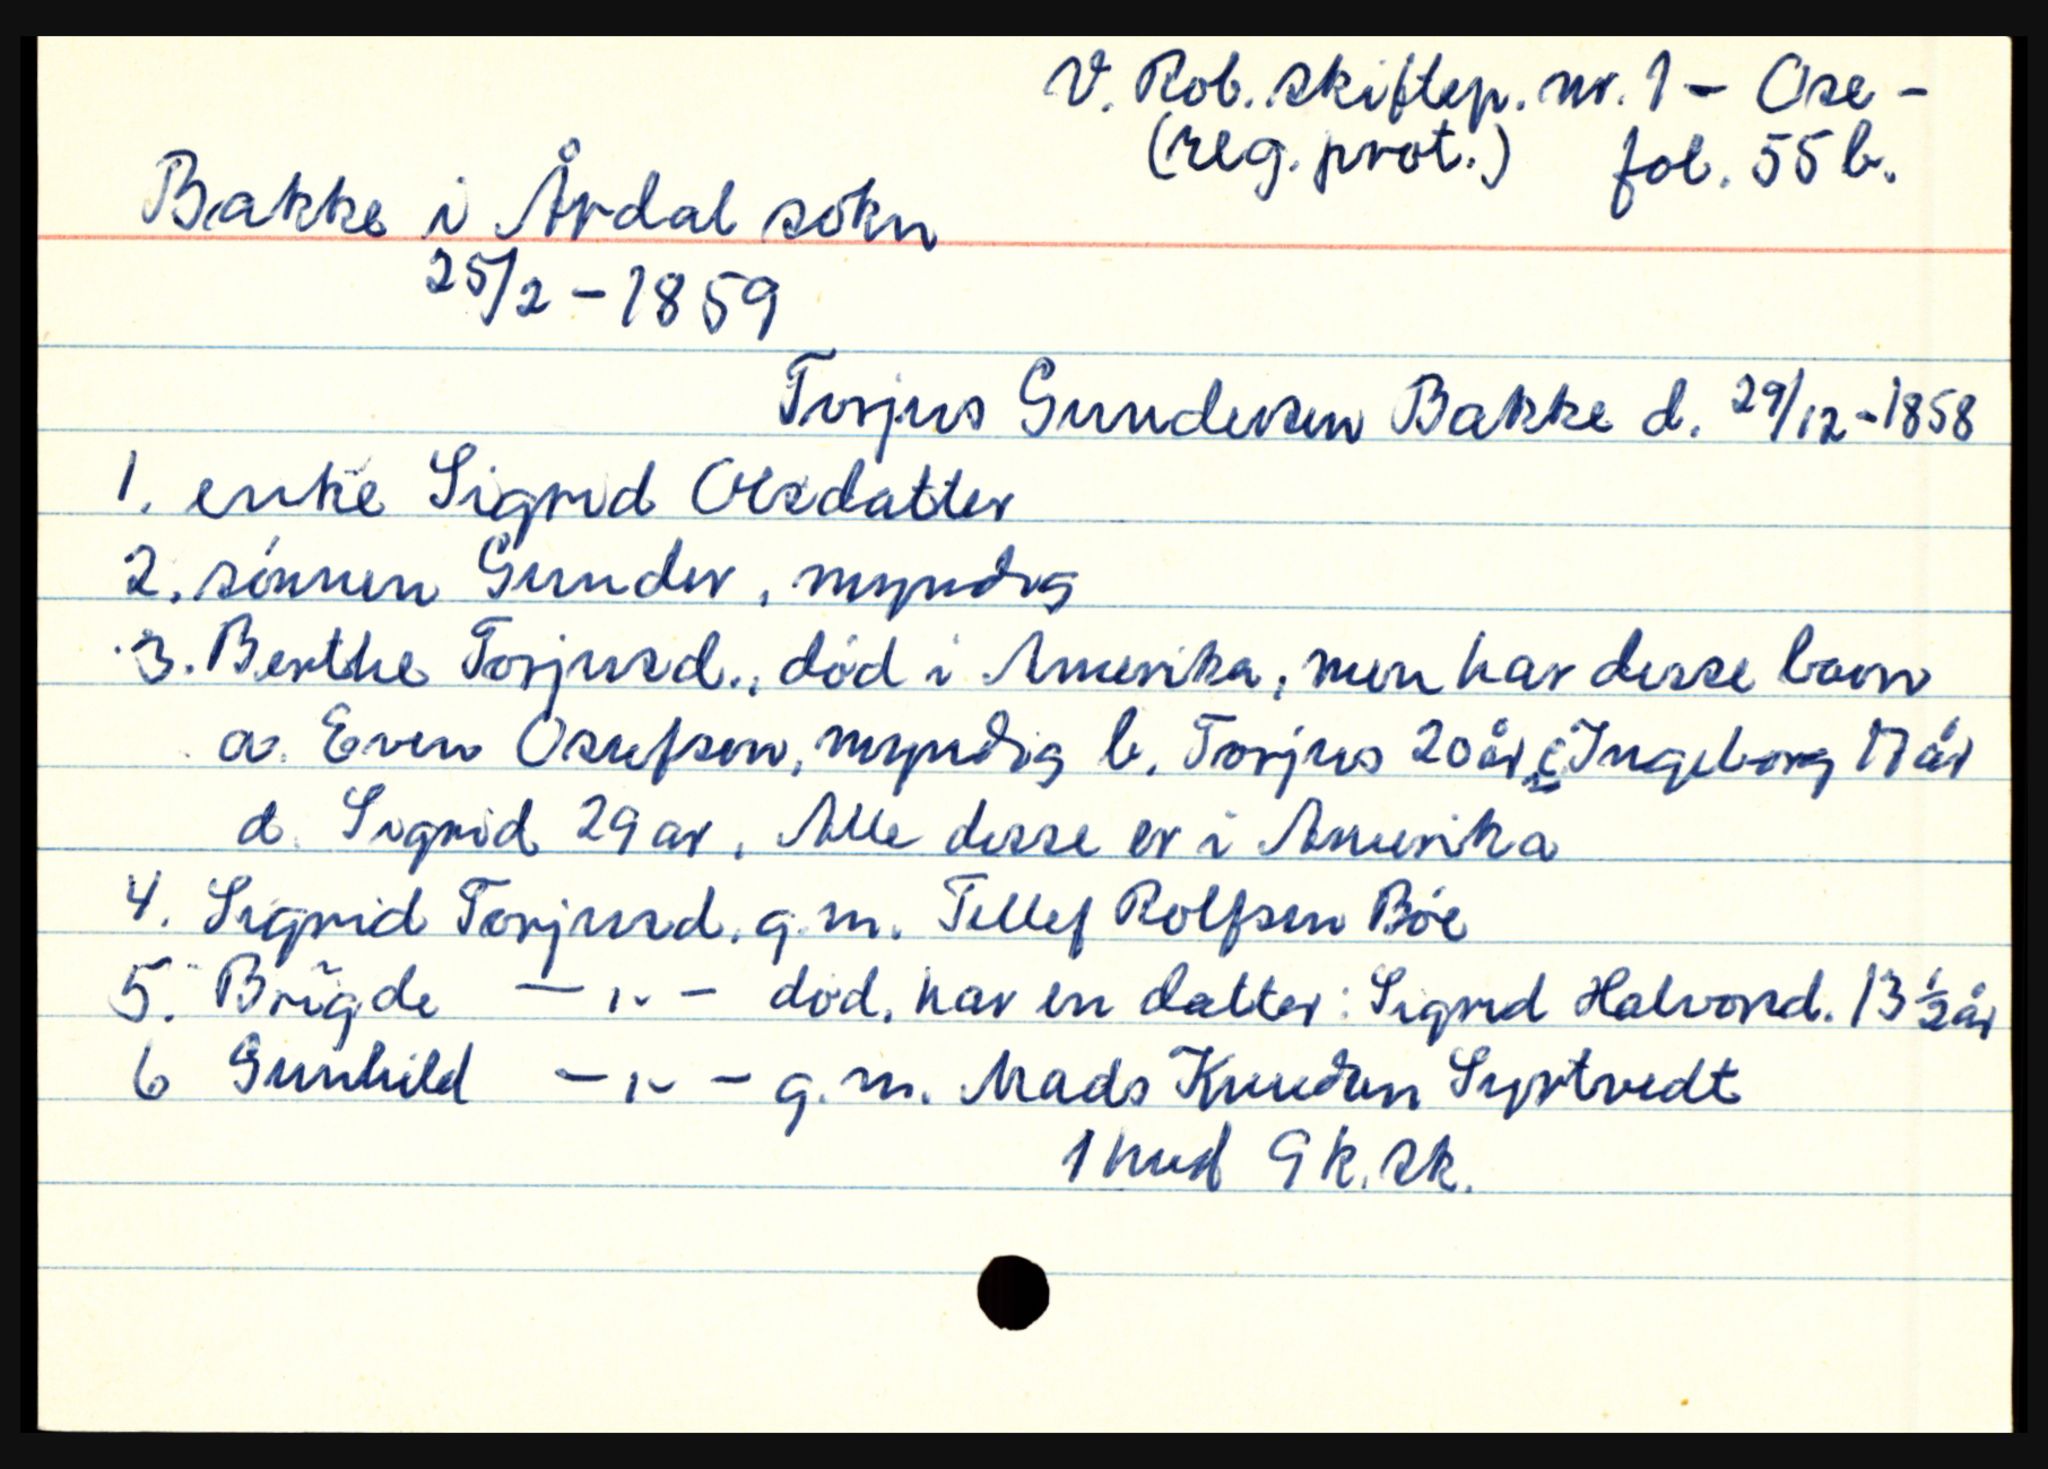 V. Rob. skiftep. nr. 1 – Ose –
(reg. prot.) fol. 55 b.
Bakke i Årdal sokn
25/2 – 1859
Torjus Gundersen Bakke d. 29/12 - 1858
1. enke Sigrid Olsdatter
2. sönnen Gunder, myndig
3. Berthe Torjusd., död i Amerika, men har disse barn
a. Even Osufsen, myndig b. Torjus 20 år c Ingeborg 17 år
d. Sigrid 29 ar. Alle disse er i Amerika
4. Sigrid Torjusd. g. m. Tellef Rolfsen Böe
5. Brigde — ,, — död. har en datter: Sigrid Halvorsd. 13 ½ år
6 Gunhild — ,, — g. m. Mads Knudsen Syrtvedt
1 hud 9 k. sk.